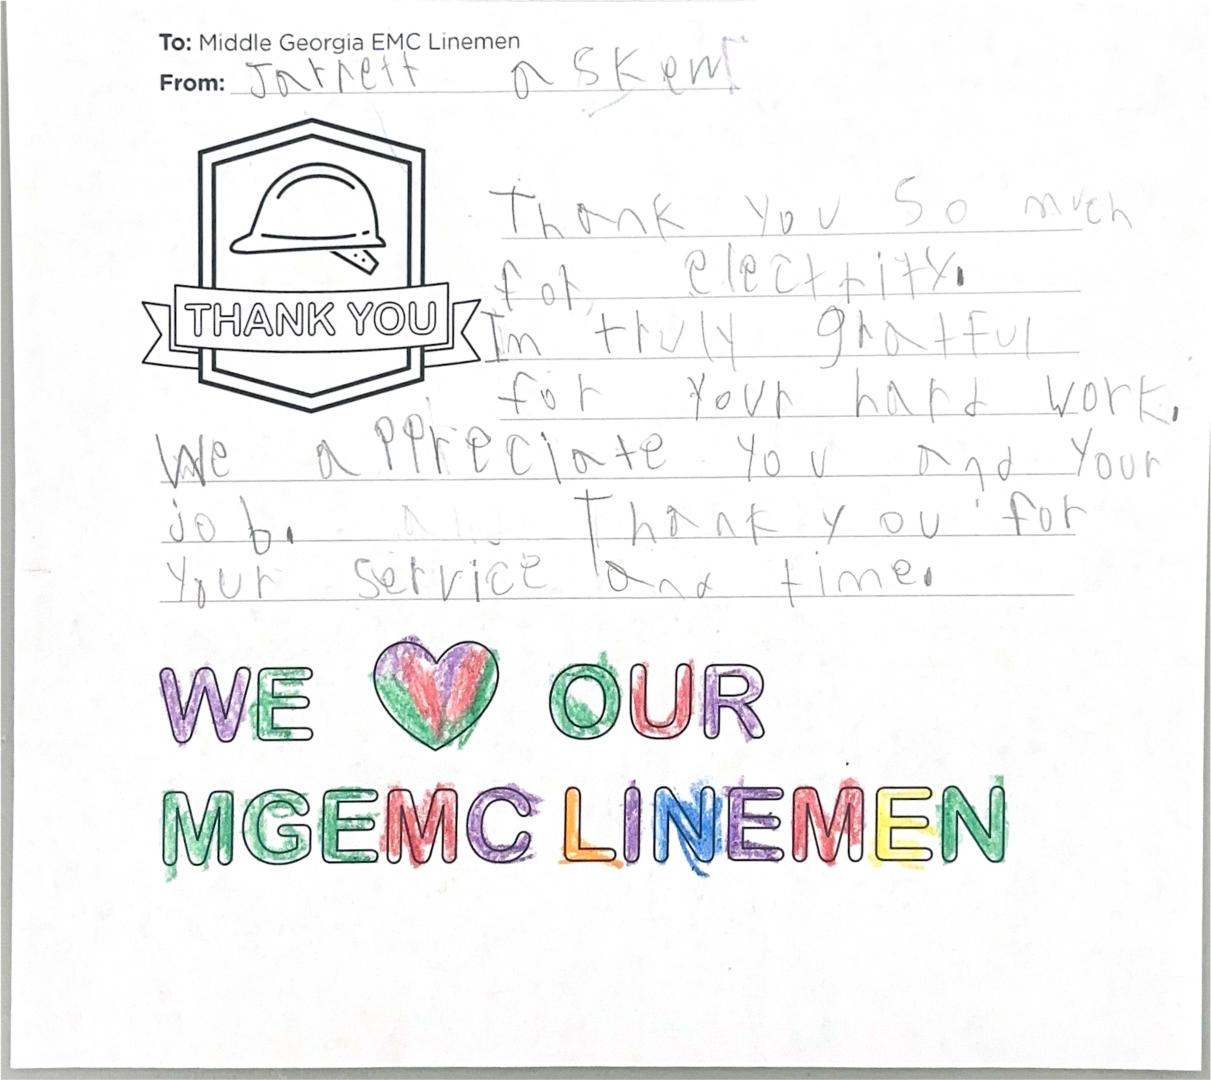 To: Middle Georgia EMC Linemen
From: Jarrett askew
THANK YOU
Thank you so much
for electrity.
Im truly gratful
for your hard work.
We appreciate you and your
job. Thank you for
your service and time.
WE OUR
MGEMC LINEMEN